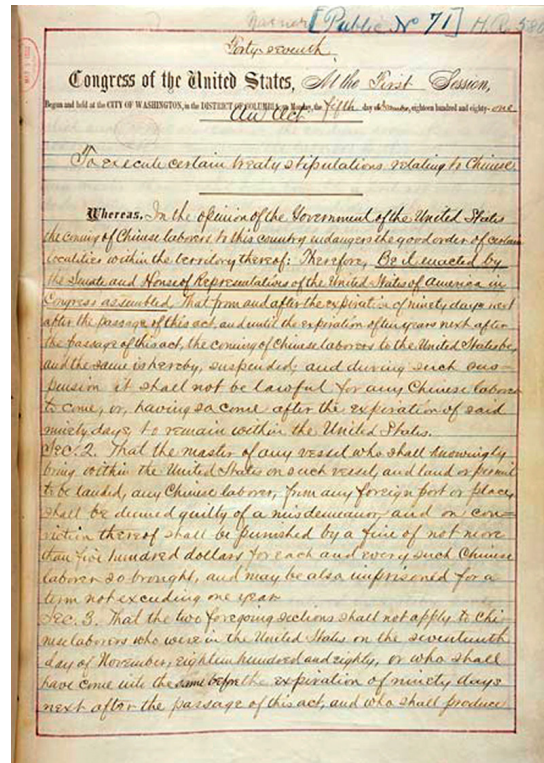 [Public No 71] H.R. 580
Forty-seventh
Congress of the United States, At the First Session,
Begun and held at the CITY OF WASHINGTON, in the DISTRICT OF COLUMBIA, on Monday, the fifth day of December, eighteen hundred and eighty-one
An Act
To execute certain treaty stipulations relating to Chinese.
Whereas, In the opinion of the Government of the United States
the coming of Chinese laborers to this country endangers the good order of certain
localities within the territory thereof: Therefore, Be it enacted by
the Senate and House of Representatives of the United States of America in
Congress assembled, That from and after the expiration of ninety days next
after the passage of this act, and until the expiration of ten years next after
the passage of this act, the coming of Chinese laborers to the United States be,
and the same is hereby, suspended; and during such sus-
pension it shall not be lawful for any Chinese laborer
to come, or, having so come after the expiration of said
ninety days, to remain within the United States.
Sec. 2. That the master of any vessel who shall knowingly
bring within the United States on such vessel, and land or permit
to be landed, any Chinese laborer, from any foreign port or place,
shall be deemed guilty of a misdemeanor, and on con=
viction thereof shall be punished by a fine of not more
than five hundred dollars for each and every such Chinese
laborer so brought, and may be also imprisoned for a
term not exceeding one year.
Sec. 3. That the two foregoing sections shall not apply to Chi-
nese laborers who were in the United States on the seventeenth
day of November, eighteen hundred and eighty, or who shall
have come into the same before the expiration of ninety days
next after the passage of this act, and who shall produce